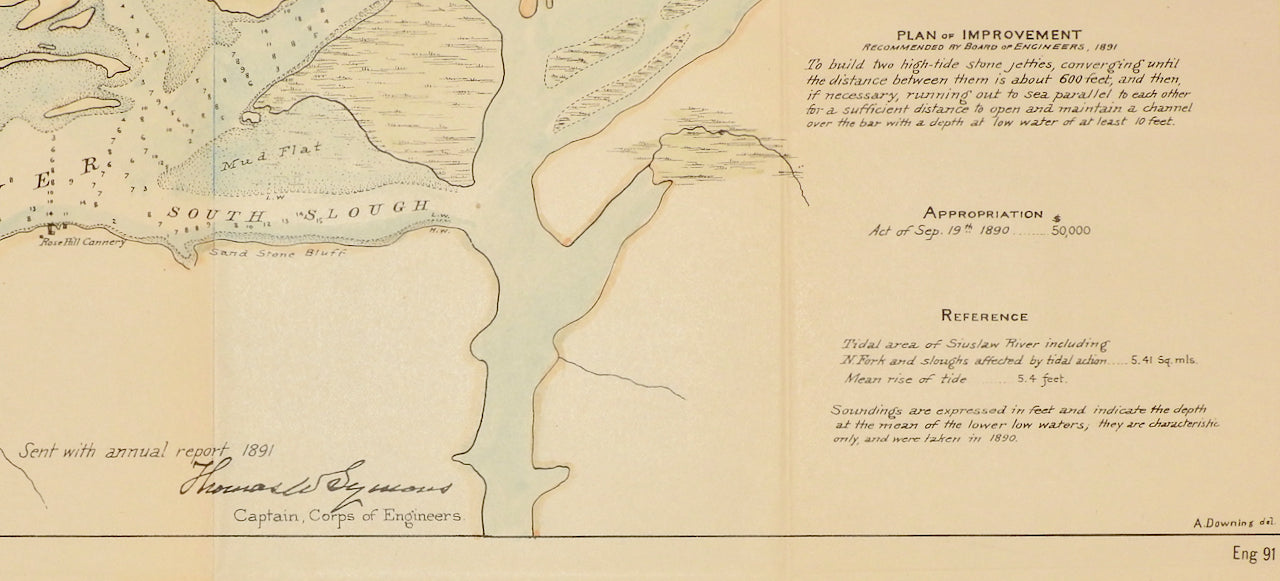 PLAN OF IMPROVEMENT
RECOMMENDED BY BOARD OF ENGINEERS, 1891
To build two high-tide stone jetties, converging until
the distance between them is about 600 feet, and then,
if necessary, running out to sea parallel to each other
for a sufficient distance to open and maintain a channel
over the bar with a depth at low water of at least 10 feet.
Mud Flat
E R
L.W.
SOUTH SLOUGH
L.W.
H.W.
Rose Hill Cannery
Sand Stone Bluff
APPROPRIATION
$
Act of Sep. 19th 1890 ........ 50,000
REFERENCE
Tidal area of Siuslaw River including
N Fork and sloughs affected by tidal action..... 5.41 Sq. mls.
Mean rise of tide ........ 5.4 feet.
Soundings are expressed in feet and indicate the depth
at the mean of the lower low waters; they are characteristic
only, and were taken in 1890.
Sent with annual report 1891
Thomas W Symons
Captain, Corps of Engineers.
A. Downing del.
Eng 91